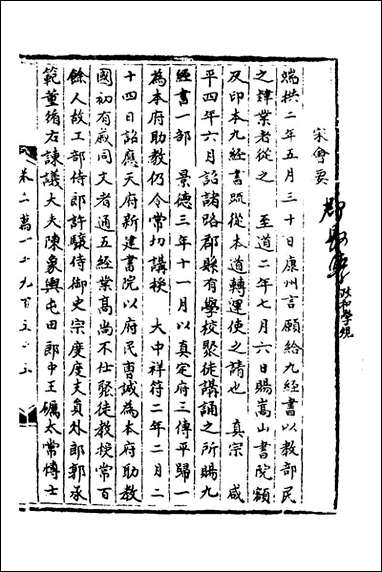 宋會要
郡縣學 政和學規
端拱二年五月三十日康州言願給九經書以教部民
之肄業者從之　至道二年七月六日賜嵩山書院額
及印本九經書疏從本道轉運使之請也　真宗　咸
平四年六月詔諸路郡縣有學校聚徒講誦之所賜九
經書一部　景德三年十一月以真定府三傳平歸一
為本府助教仍令常切講授　大中祥符二年二月二
十四日詔應天府新建書院以府民曹誠為本府助教
國初有戚同文者通五經業高尚不仕聚徒教授常百
餘人故工部侍郎許驤侍御史宗度度支員外郎郭承
範董循右諫議大夫陳象輿屯田郎中王礪太常博士
卷二萬一千九百五十五